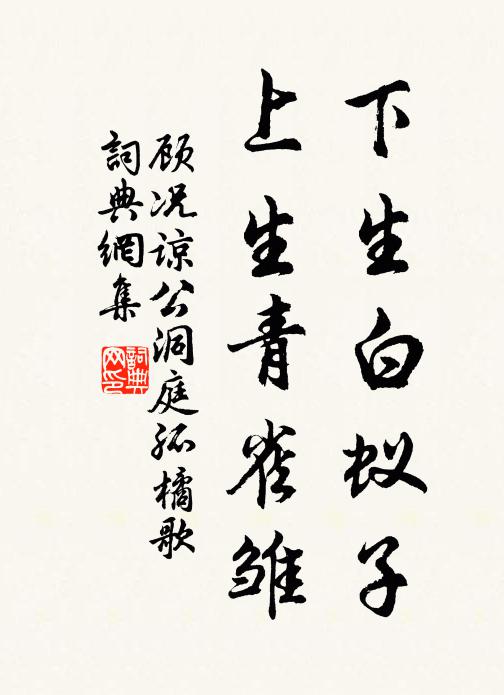 下生白蚁子
上生青雀雏
顾况谅公洞庭孤橘歌
詞典網集
詞典网印